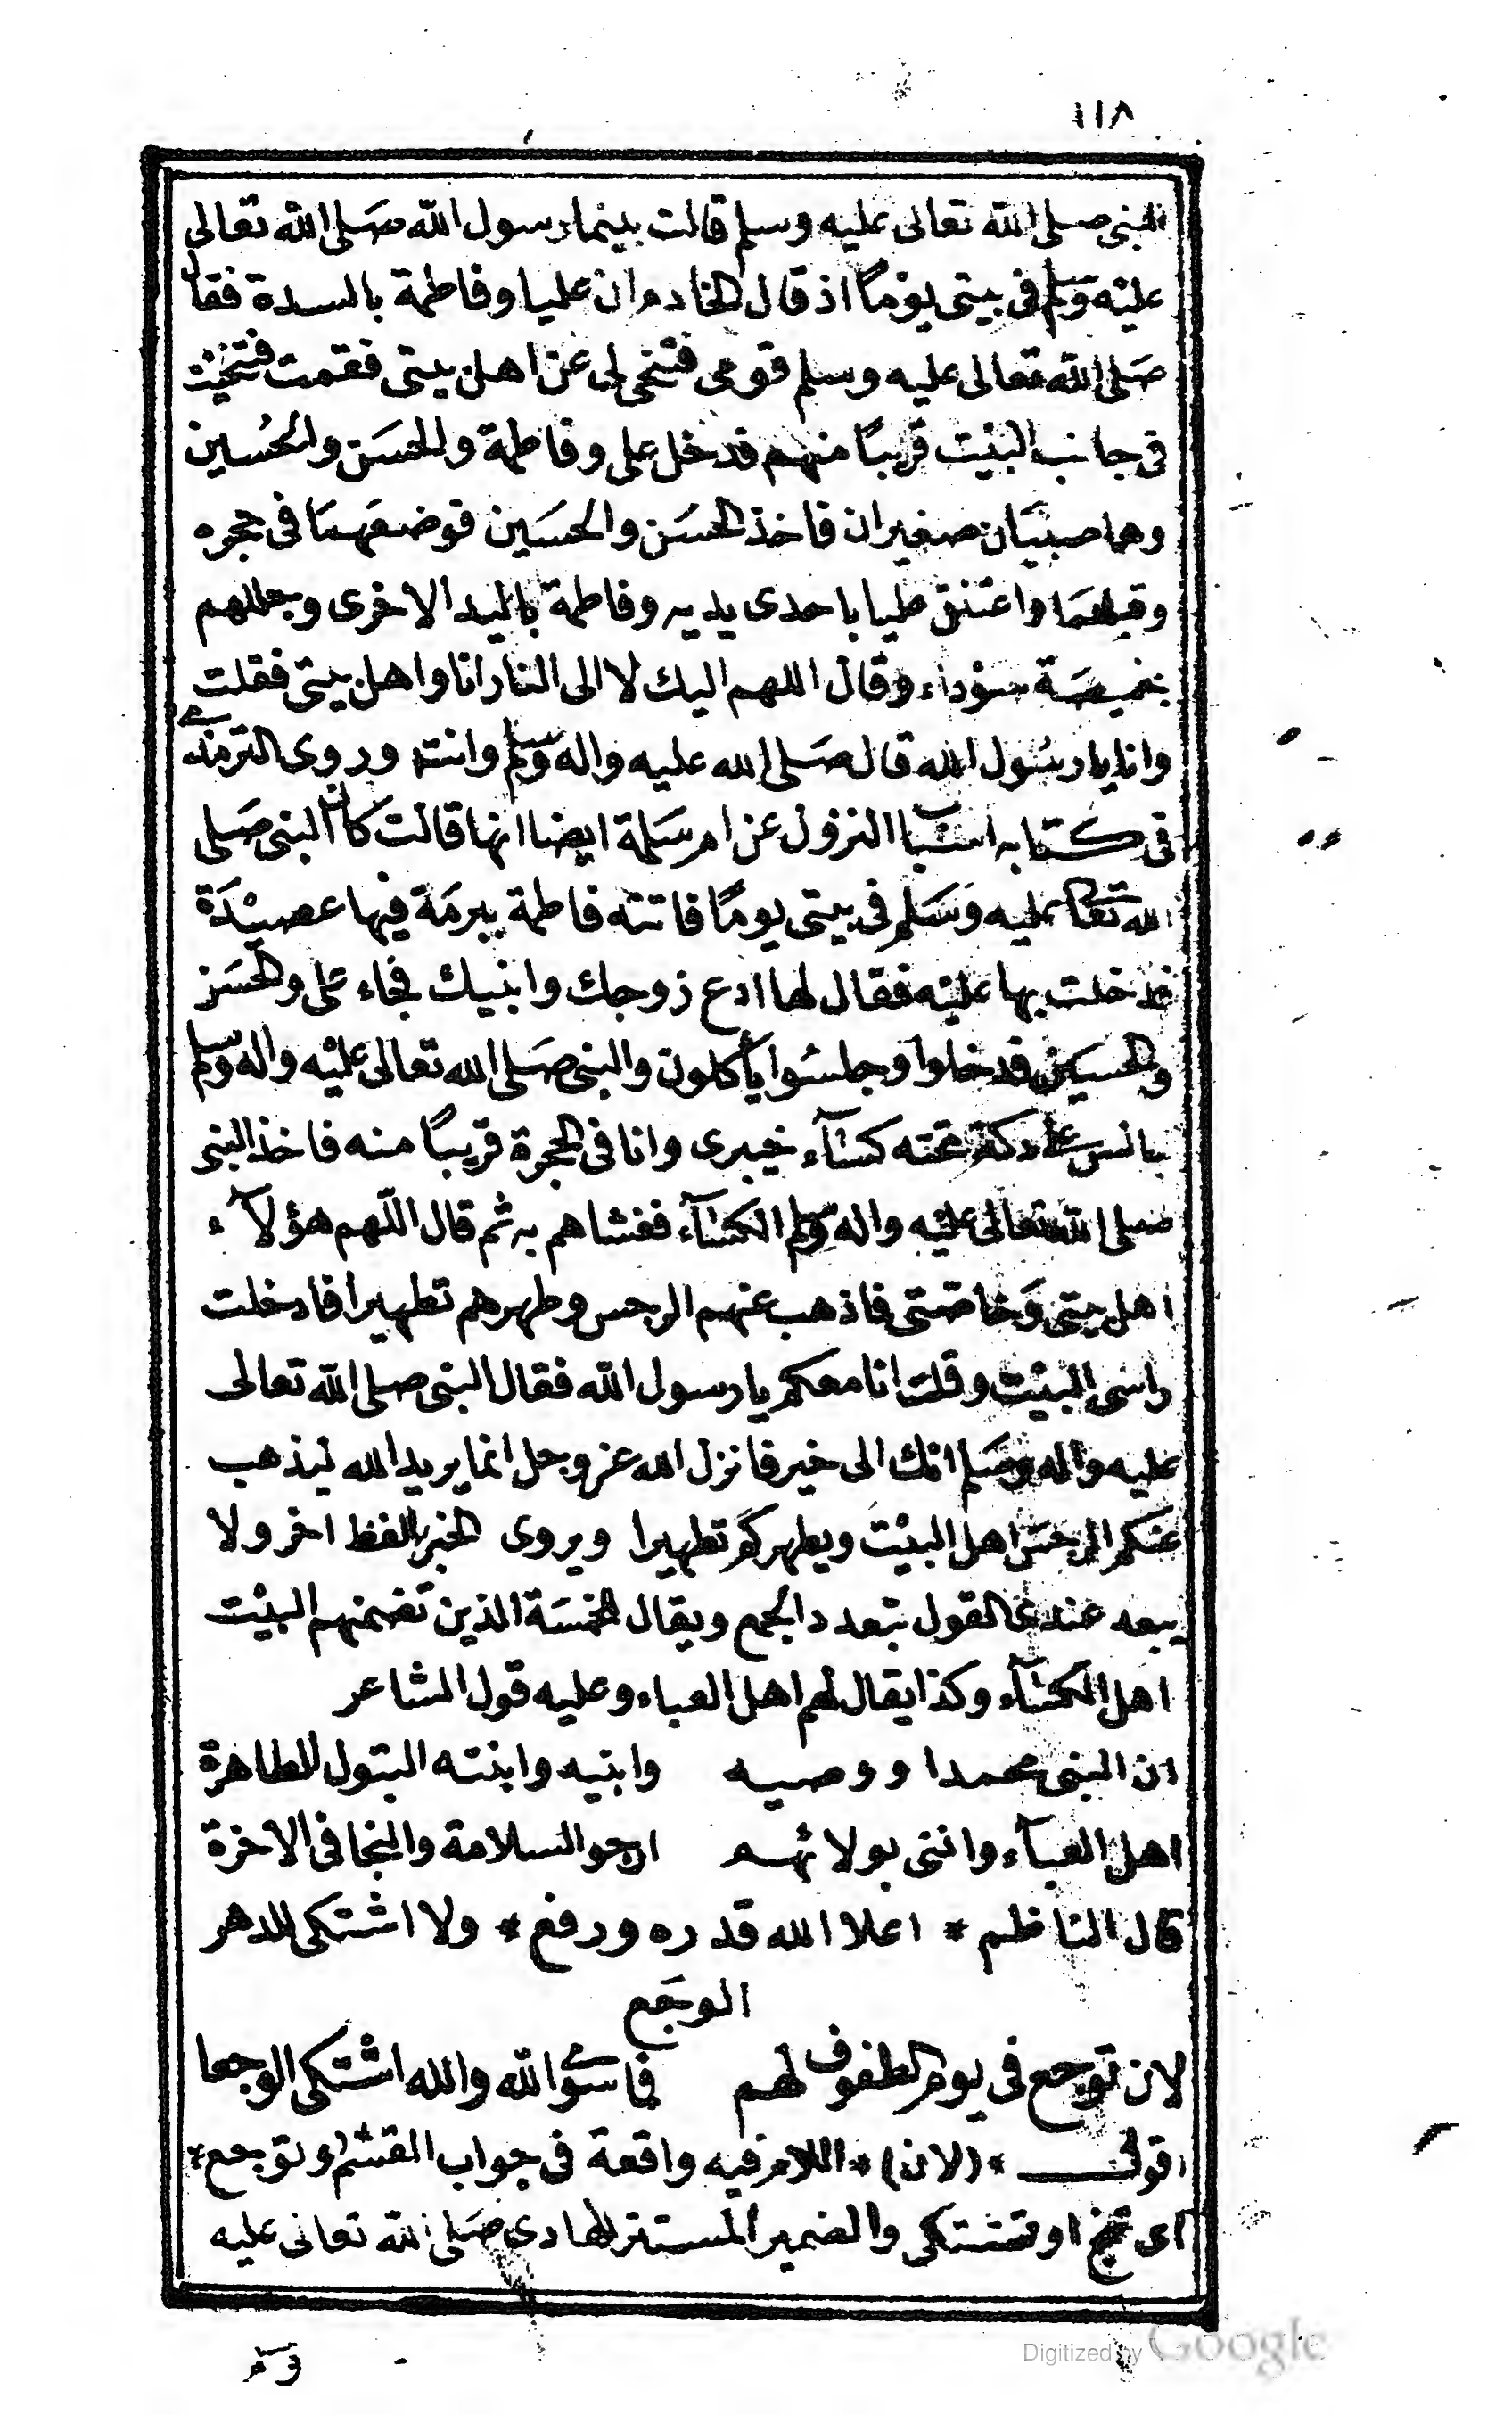 ١١٨
النبى صلى الله تعالى عليه وسلم قالت بينما رسول الله صَلى الله تعالى
عليْه وسَلم فى بيتى يوْمًا اذ قال الخادم ان عليا وفاطمة بالسدة فقال
صَلى الله تعالى عليه وسلم قومى فتنحى لى عن اهل بيتى فقمت فتنحيْت
فى جانب البيْت قريبًا منهم فدخل على وفاطمة والحسَن والحُسين
وهما صبيَان صغيران فاخذ الحسَن والحسَين فوضعَهمَا فى حجره
وقبلهمَا واعتنق عليا باحدى يديه وفاطمة باليد الاخرى وجللهم
بخميصَة سوْداء وقال اللهم اليك لا الى النار انا واهل بيتى فقلت
وانا يا رسُول الله قال صَلى الله عليه واله وسَلم وانت وروى الترمذى
فى كتابه اسباب النزول عن ام سَلمة ايضا انها قالت كان النبى صَلى
الله تعالى عليه وَسَلم فى بيتى يومًا فاتته فاطمة ببرمَة فيها عصيْدَة
فدخلت بها عليْه فقال لها ادع زوجك وابنيك فجاء على والحسَن
والحسين فدخلوا وجلسُوا يأكلون والنبى صَلى الله تعالى عليْه واله وسلم
جالس على دكة تحته كسَآء خيبرى وانا فى الحجرة قريبًا منه فاخذ النبى
صلى الله تعالى عليْه واله وسلم الكسَآء فغشاهم به ثم قال اللّهم هؤلآء
اهل بيتى وَخاصّتى فاذهب عنهم الرجس وطهرهم تطهيرا فادخلت
راسى البيْت وقلت انا معكم يا رسول الله فقال النبى صلى الله تعالى
عليه واله وسَلم انك الى خير فانزل الله عز وجل انما يريد الله ليذهب
عنكم الرجسَ اهل البيْت ويطهركم تطهيرا ويروى الخبر بالفظ اخر ولا
يبعد عندى القول بتعدد الجمع ويقال للخمسَة الذين تضمنهم البيْت
اهل الكسَآء وكذا يقال لهم اهل العباء وعليه قول الشاعر
ان النبى محمدا ووصيه وابنيه وابنته البتول الطاهرة
اهل العبآء واننى بولائهم ارجو السلامة والنجا فى الاخرة
قال الناظم * اعلا الله قدره ورفع * ولا اشتكى للدهر
الوجَع
لان توجع فى يوم الطفوف لهم فما سوى الله والله اشتكى الوجعا
اقول * (لان) * اللام فيه واقعة فى جواب القسْم و توجع *
اى تفجع او تشتكى والضمير المستتر للهادى صَلى الله تعالى عليه
وسلم
Digitized by Google